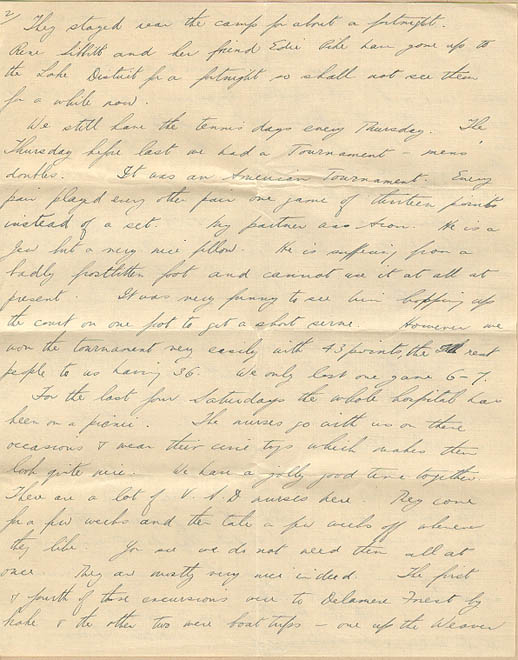 2/ They stayed near the camp for about a fortnight.
Rene and her friend Edie Pike have gone up to
the Lake District for a fortnight so shall not see them
for a while now.
We still have the tennis days every Thursday. The
Thursday before last we had a Tournament – mens'
doubles. It was an American Tournament. Every
pair played every other pair one game of thirteen points
instead of a set. My partner was . He is a
Jew but a very nice fellow. He is suffering from a
badly frostbitten foot and cannot use it at all at
present. It was very funny to see him hopping up
the court on one foot to get a short serve. However we
won the tournament very easily with 43 points, the next
people to us having 36. We only lost one game 6–7.
For the last four Saturdays the whole hospital has
been on a picnic. The nurses go with us on these
occasions & wear their civie togs which makes them
look quite nice. We have a jolly good time together.
There are a lot of V.A.D nurses here. They come
for a few weeks and then take a few weeks off whenever
they like. You see we do not need them all at
once. They are mostly very nice indeed. The first
& fourth of these excursions were to Delamere Forest by
brake & the other two were boat trips – one up the Weaver